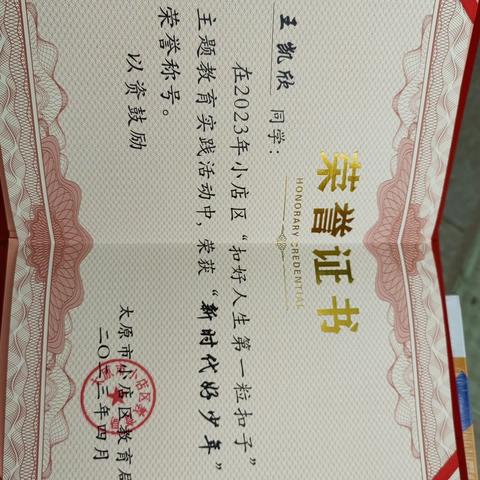 荣誉证书
HONORARY CREDENTIAL
王凯欣 同学：
在2023年小店区“扣好人生第一粒扣子”
主题教育实践活动中，荣获“新时代好少年”
荣誉称号。
以资鼓励
太原市小店区教育局
二〇二三年四月